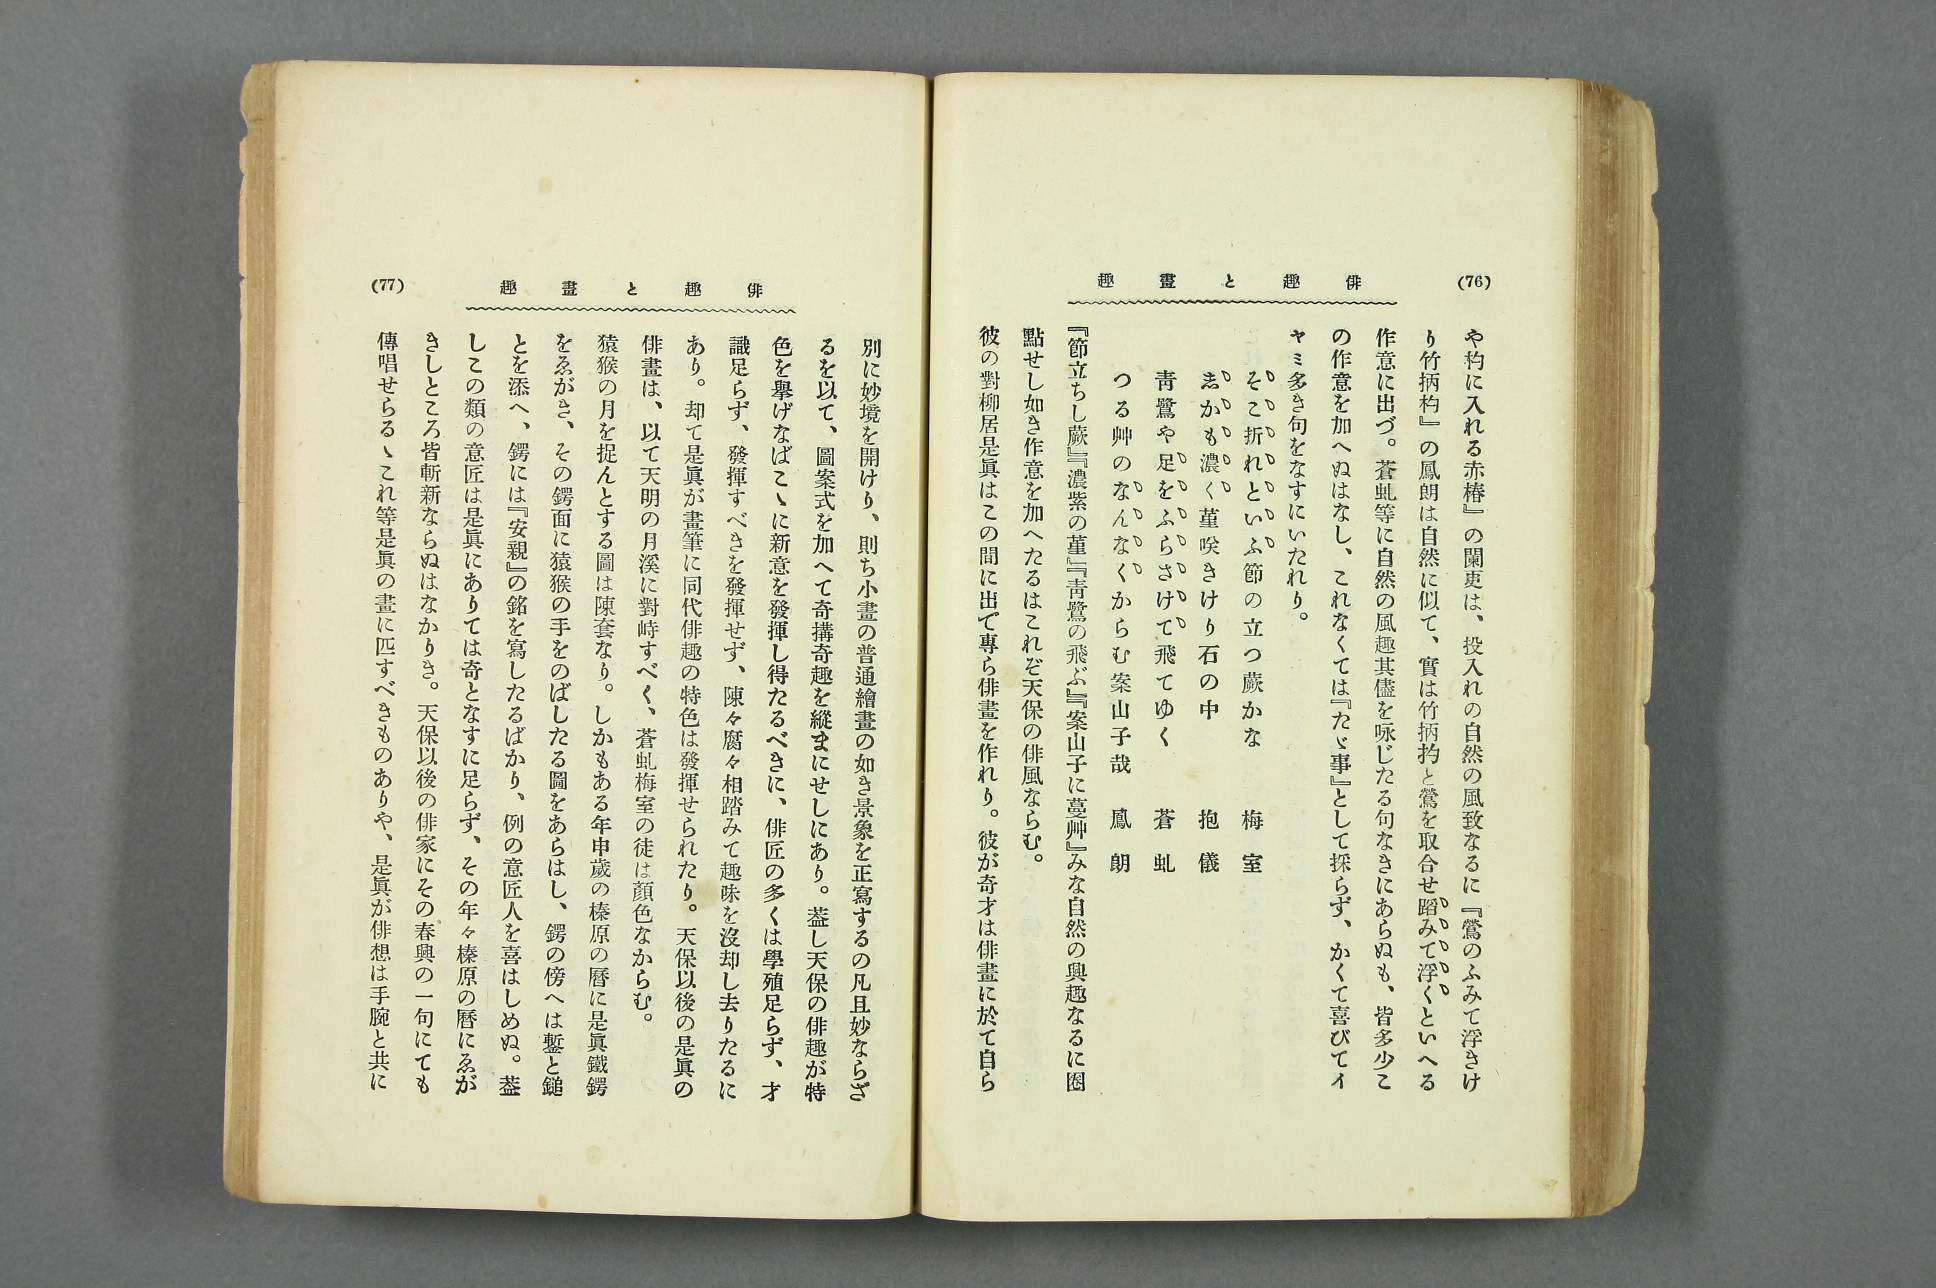 (76)
俳趣と畫趣
や杓に入れる赤椿』の闌更は、投入れの自然の風致なるに『鶯のふみて浮きけ
り竹柄杓』の鳳朗は自然に似て、實は竹柄杓と鶯を取合せ蹈みて浮くといへる
作意に出づ。蒼虬等に自然の風趣其儘を咏じたる句なきにあらぬも、皆多少こ
の作意を加へぬはなし、これなくては『たゞ事』として採らず、かくて喜びてイ
ヤミ多き句をなすにいたれり。
そこ折れといふ節の立つ蕨かな 梅室
志かも濃く菫咲きけり石の中 抱儀
靑鷺や足をふらさけて飛てゆく 蒼虬
つる艸のなんなくからむ案山子哉 鳳朗
『節立ちし蕨』『濃紫の菫』『靑鷺の飛ぶ』『案山子に蔓艸』みな自然の興趣なるに圈
點せし如き作意を加へたるはこれぞ天保の俳風ならむ。
彼の對柳居是眞はこの間に出で專ら俳畫を作れり。彼が奇才は俳畫に於て自ら
(77)
俳趣と畫趣
別に妙境を開けり、則ち小畫の普通繪畫の如き景象を正寫するの凡且妙ならざ
るを以て、圖案式を加へて奇搆奇趣を縱まにせしにあり。葢し天保の俳趣が特
色を擧げなばこゝに新意を發揮し得たるべきに、俳匠の多くは學殖足らず、才
識足らず、發揮すべきを發揮せず、陳々腐々相踏みて趣味を沒却し去りたるに
あり。却て是眞が畫筆に同代俳趣の特色は發揮せられたり。天保以後の是眞の
俳畫は、以て天明の月溪に對峙すべく、蒼虬梅室の徒は顏色なからむ。
猿猴の月を捉んとする圖は陳套なり。しかもある年申歲の榛原の曆に是眞鐵鍔
をゑがき、その鍔面に猿猴の手をのばしたる圖をあらはし、鍔の傍へは鏨と鎚
とを添へ、鍔には『安親』の銘を寫したるばかり、例の意匠人を喜はしめぬ。葢
しこの類の意匠は是眞にありては奇となすに足らず、その年々榛原の曆にゑが
きしところ皆斬新ならぬはなかりき。天保以後の俳家にその春興の一句にても
傳唱せらるゝこれ等是眞の畫に匹すべきものありや、是眞が俳想は手腕と共に